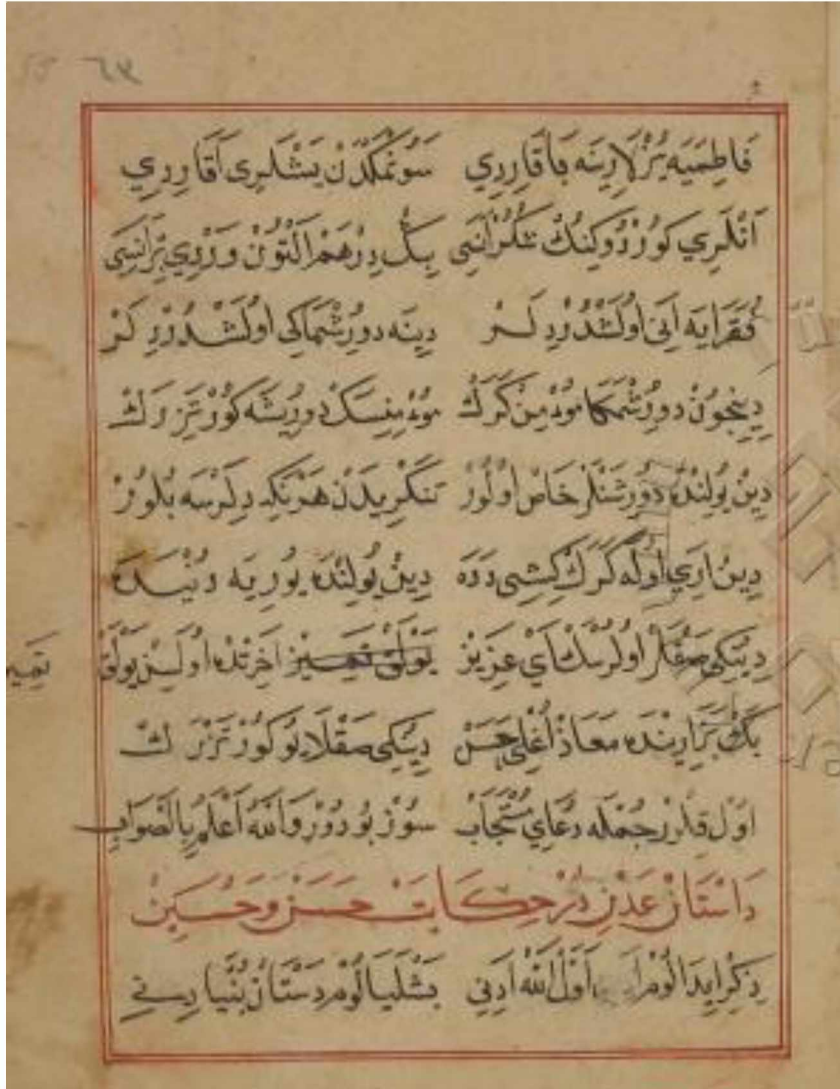 ٦٣
فَاطِمَيَه يُزْلَرِينَه بَاقَارِدِي سَوُنمَكْدَنْ يَشْلَرِى اَقَارِدِي
اَنْلَرِي كَوُرْدُوكِنُكْ شُكْرَانَسِى بِيكْ دِرْهَمْ اَلْتُونْ وَرْدِي بَرَانَسِى
فُقَرَايَه اَنِى اوُلَشْدُرْدِلَرْ دِينَه دوُرِشْمَاكِى اوُلَشْدُرْدِلَرْ
دِينجوُنْ دوُرِشْمَكَا موُءمِنْ كَرَكْ موُءمِنِسَكْ دوُرِيشَه كوُرْ تَزِرَكْ
دِينْ يوُلِنْدَه دوُرِشَنْلَرْ خَاصْ اوُلوُرْ تَنكْرِيدَنْ هَرْنَكِه دِلَرْسَه بُلوُرْ
دِينْ اَرِي اوُلَه كَرَكْ كِشِى دَدَه دِينْ يوُلِنْدَه يوُرِيَه دُنْيَادَه
دِينُكِى صَقْلَرْ اوُلُرْسَكْ اَيْ عَزِيزْ اَخِرَتْدَه اوُلَسِزْ يَوْلَقْ تَمِيز
بَكْ بَزَارِنْدَه مَعَاذْ اُغْلِى حَسَنْ دِينُكِى صَقْلَايوُ كوُرْ تَزْرَكْ
اوُلْ قِلُرْ جُمْلَه دُعَايِ مُسْتَجَابْ سوُزْ بوُدوُرْ وَاللهُ اَعْلَمُ بِالصَّوَابِ
دَاسْتَانْ عَدْنِ دَرْحِكَايَتْ حَسَنْ وَحُسَيِنْ
ذِكْرِ ايدَالوُمْ اَوَّلْ اَللهْ اَدِنِى بَشْلَيَالوُمْ دَسْتَانْ بُنْيَادِنِى